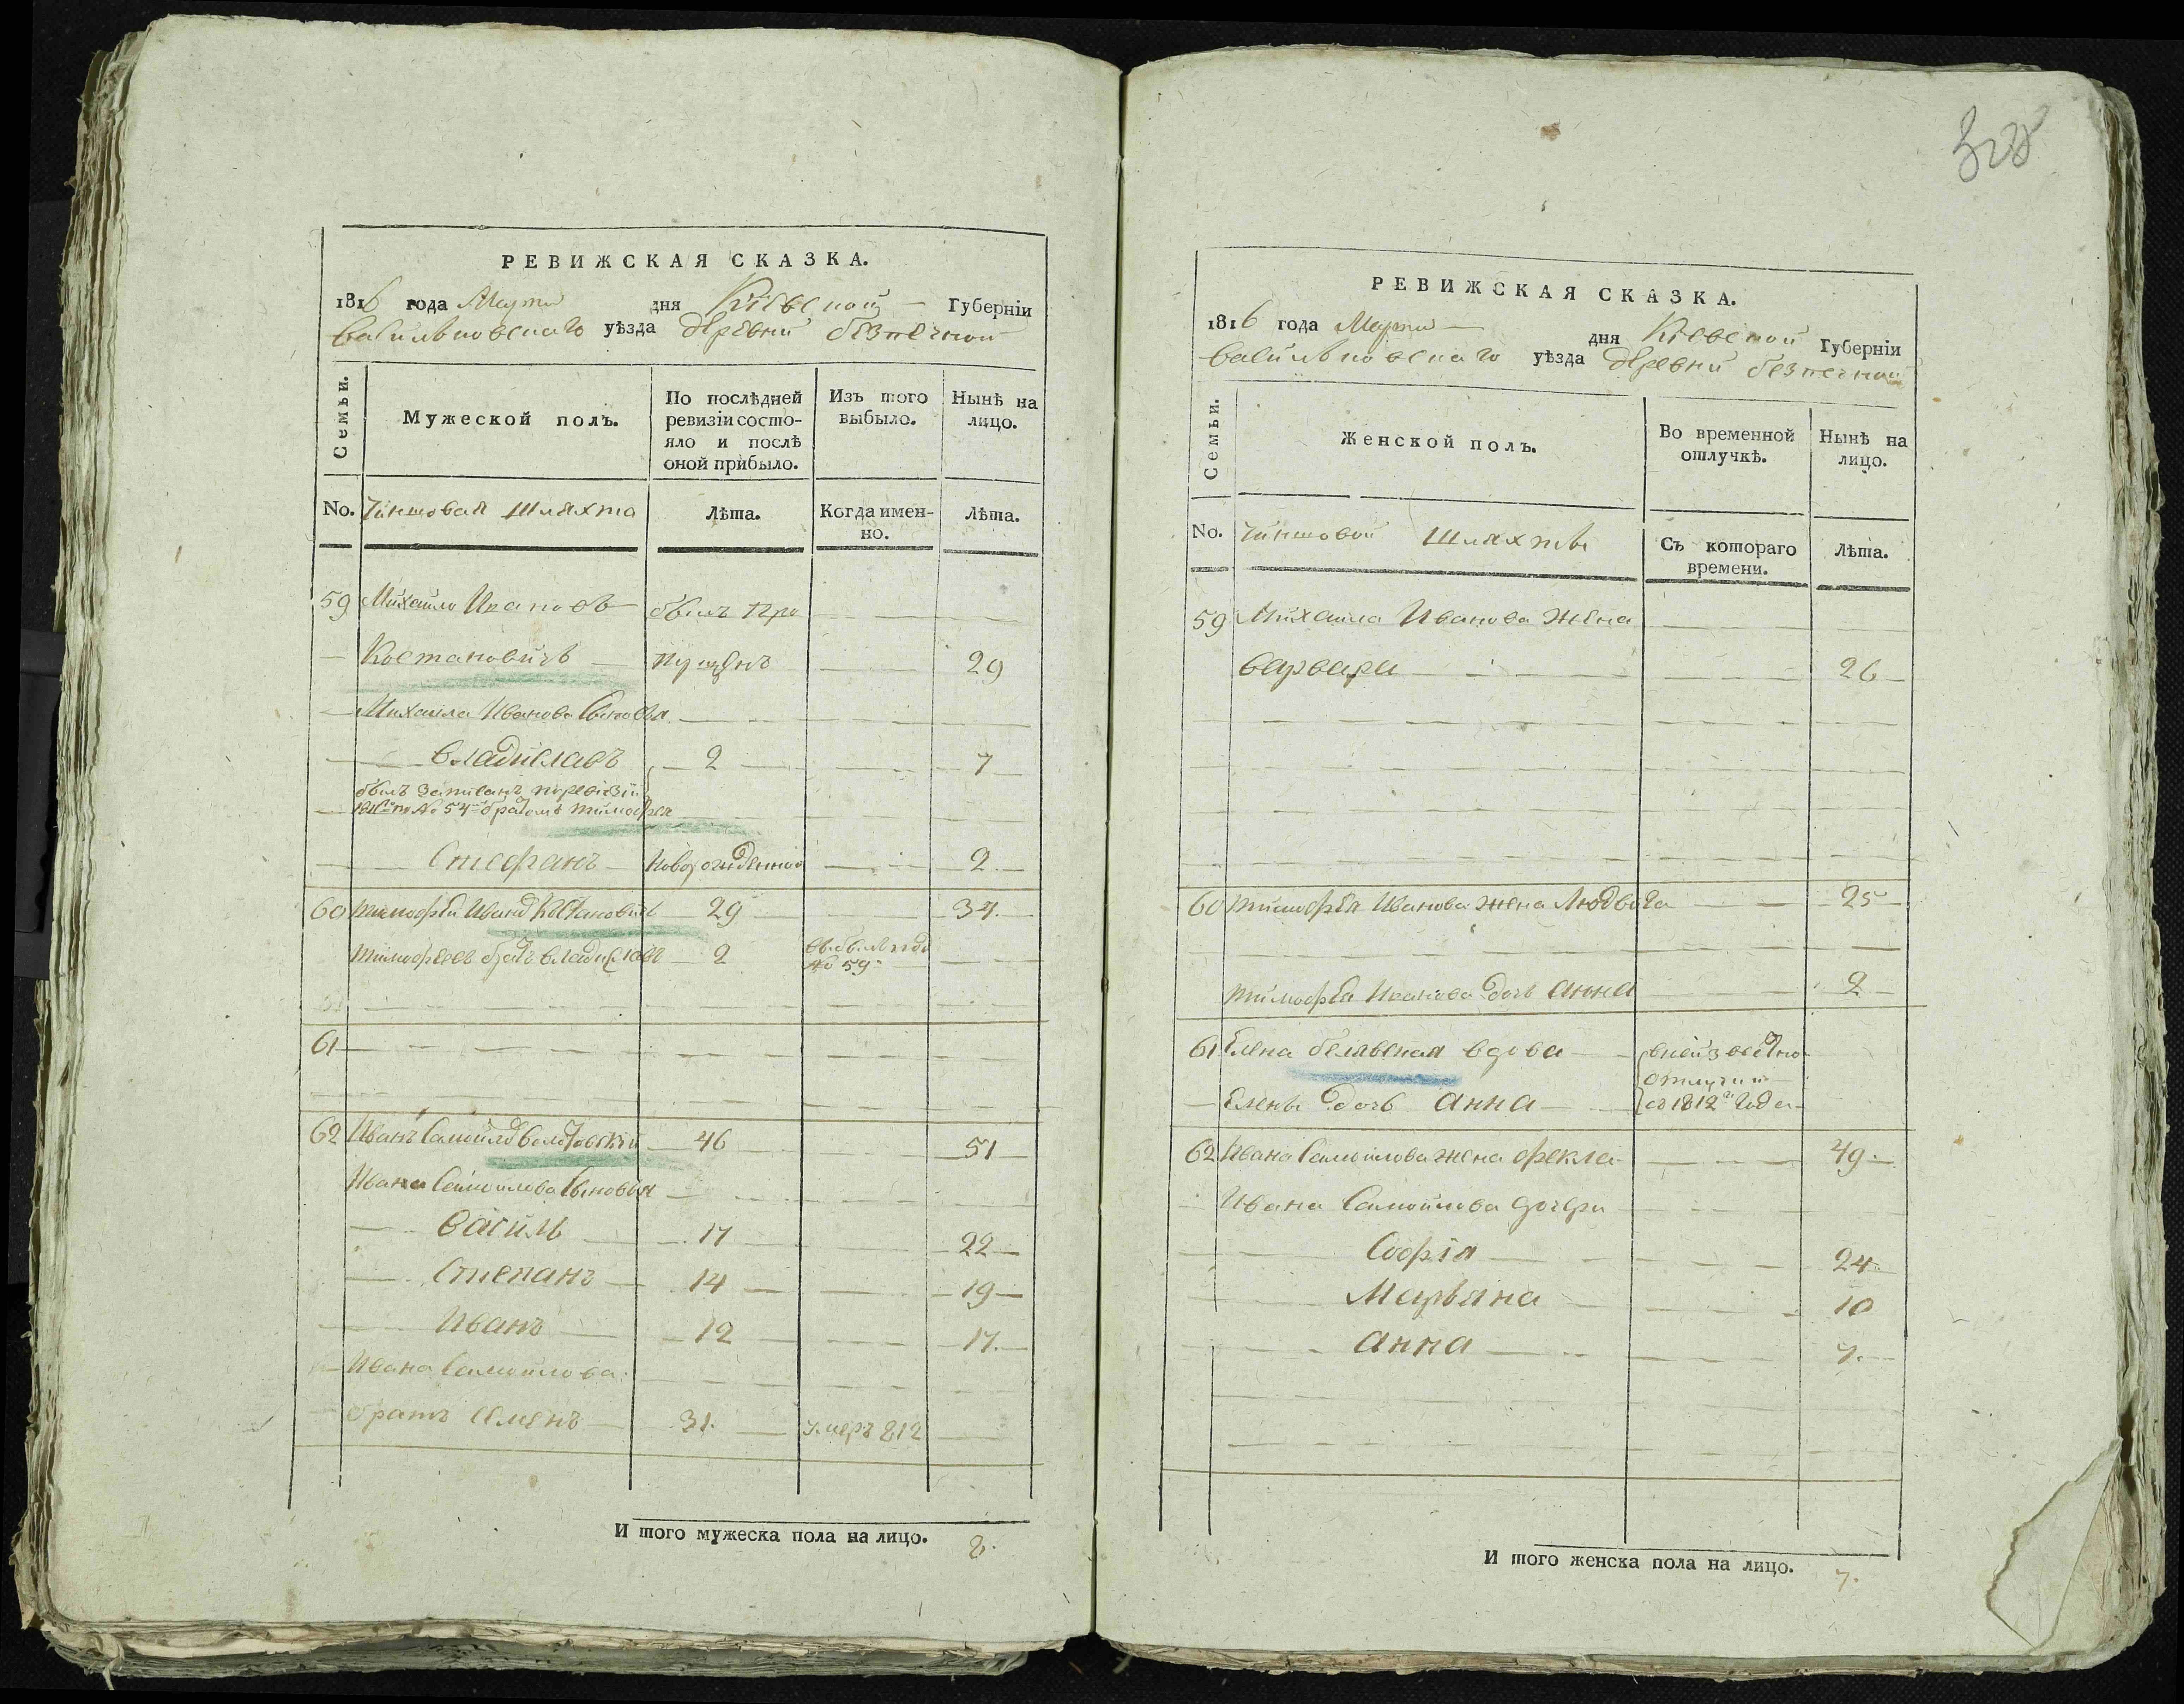 328
РЕВИЖСКАЯ СКАЗКА.
1816 года Марта дня Кіевской Губерніи
Васильковскаго уѣзда деревни безпечной
Семьи.
Мужеской полъ.
По послѣдней ревизіи состояло и послѣ оной прибыло.
Изъ того выбыло.
Нынѣ на лицо.
No. Чиншовая шляхта
Лѣта.
Когда именно.
Лѣта.
59 Михайло Иванов былъ про
Костановичъ пущенъ 29
Михаила Иванова сыновья
Владиславъ 2 7
былъ записанъ по ревизіи
No 54 братомъ тимофея
Стефанъ новорожденной 2
60 тимофей Иванов Костановичъ 29 34
тимофеевъ братъ владиславъ 2 выбылъ подъ No 59
61
62 Иванъ Самойлов 46 51
Ивана Самойлова сыновья
Василь 17 22
Степанъ 14 19
Иванъ 12 17
Ивана Самойлова
братъ семенъ 31 умеръ 812
И того мужеска пола на лицо. 8.
РЕВИЖСКАЯ СКАЗКА.
1816 года Марта дня Кіевской Губерніи
Васильковскаго уѣзда деревни безпечной
Семьи.
Женской полъ.
Во временной отлучкѣ.
Нынѣ на лицо.
No. Чиншовой шляхты
Съ котораго времени.
Лѣта.
59 Михаила Иванова жена
варвара 26
60 тимофея Иванова жена Людвига 25
тимофея Иванова дочь анна 2
61 Елена белявская вдова в неизвестной
отлучки
Елены дочь анна съ 1812 года
62 Ивана Самойлова жена фекла 49
Ивана Самойлова дочери
Софія 24
Марьяна 10
анна 7.
И того женска пола на лицо. 7.